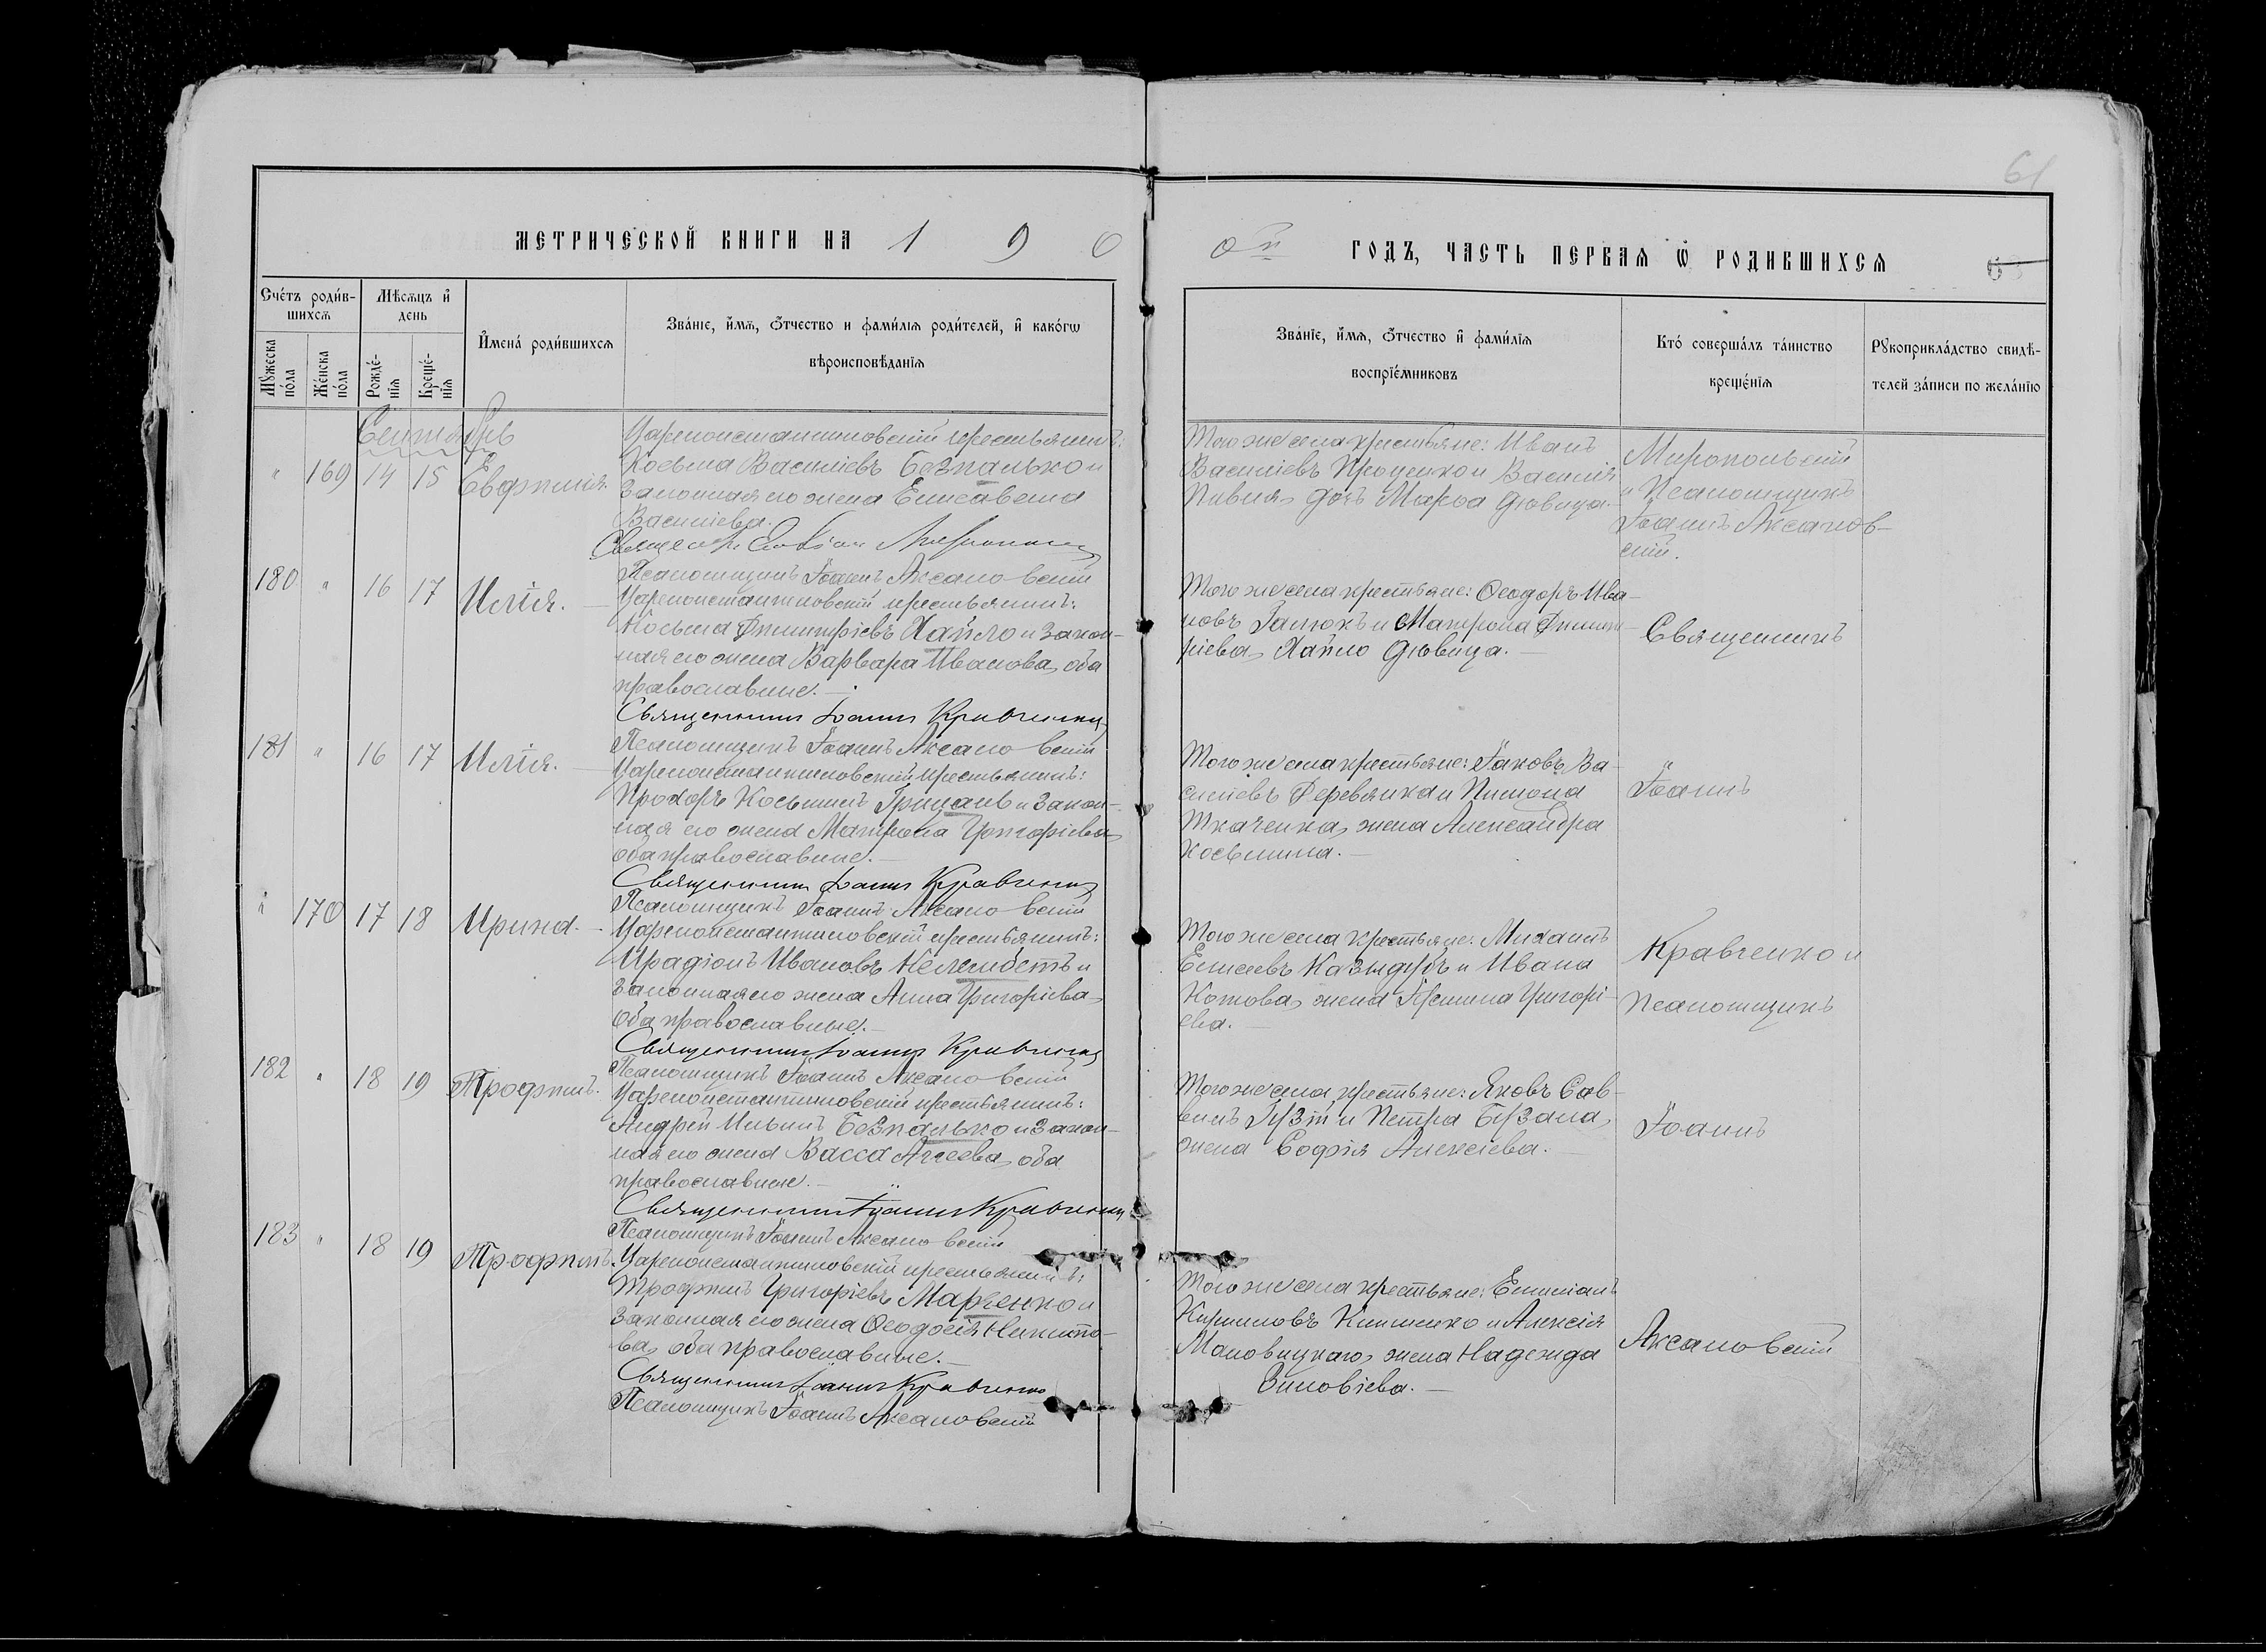 61
МЕТРИЧЕСКОЙ КНИГИ НА 1 9 0
0й ГОДЪ, ЧАСТЬ ПЕРВАЯ Ѿ РОДИВШИХСЯ
Сче́тъ роди́в-
шихсѧ
Мꙋ́жеска по́ла
Же́нска по́ла
Мѣ́сѧцъ и҆ день
Рожде́-
нїѧ
Креще́-
нїѧ
И҆мена̀ роди́вшихсѧ
Зва́нїе, и҆́мѧ, ѻ҆́тчество и фами́лїѧ роди́телей, и҆ како́гѡ
вѣроисповѣ́данїѧ
Зва́нїе, и҆́мѧ, ѻ҆́тчество и҆ фами́лїѧ
воспрїе́мниковъ
Кто̀ соверша́лъ та́инство
креще́нїѧ
Рꙋкоприкла́дство свидѣ́-
телей за́писи по жела́нїю
Сентябрь
" 169 14 15 Евфимія.
Цареконстантиновскій крестьянинъ:
Косьма Василіевъ Безпалько и
законная его жена Елисавета
Василіева.
Тогоже села крестьяне: Иванъ
Василіевъ Проценко и Василія
Пивня, дочь Марѳа дѣвица.
Миропольскій
и Псаломщикъ
Іоаннъ Аксанов-
скій.
Псаломщикъ Іоаннъ Аксановскій
180 " 16 17 Илія.
Цареконстантиновскій крестьянинъ:
Косьма Димитріевъ Хайло и закон-
ная его жена Варвара Иванова, оба
православные.
Священникъ Іоаннъ Кравченко
Псаломщикъ Іоаннъ Аксановскій
Тогоже села крестьяне: Ѳеодоръ Ива-
новъ Галюкъ и Матрона Димит-
ріева, Хайло дѣвица.
Священникъ
181 " 16 17 Илія.
Цареконстантиновскій крестьянинъ:
Прохоръ Косьминъ Грицай и закон-
ная его жена Матрона Григоріева,
оба православные.
Священникъ Іоаннъ Кравченко
Псаломщикъ Іоаннъ Аксановскій
Тогоже села крестьяне: Іаковъ Ва-
силіевъ Деревянка и Пимона
Ткаченка, жена Александра
Косьмина.
Іоаннъ
" 170 17 18 Ирина.
Цареконстантиновскій крестьянинъ:
Ирадіонъ Ивановъ Келембетъ и
законная его жена Анна Григоріева,
Оба православные.
Священникъ Іоаннъ Кравченко
Псаломщикъ Іоаннъ Аксановскій
Тогоже села крестьяне: Михаилъ
Елисеевъ Казыдубъ и Ивана
Котова, жена Григорі-
ева.
Кравченко и
Псаломщикъ
182 " 18 19 Трофимъ.
Цареконстантиновскій крестьянинъ:
Андрей Ильинъ Безпалько и закон-
ная его жена Васса Агеева, оба
православные.
Священникъ Іоаннъ Кравченко
Псаломщикъ Іоаннъ Аксановскій
Тогоже села крестьяне: Яковъ Сав-
винъ Гузій и Петра Бузала,
жена Софія Алексіева.
Іоаннъ
183 " 18 19 Трофимъ.
Цареконстантиновскій крестьянинъ:
Трофимъ Григоріевъ Марченко и
законная его жена Ѳеодосія Никито-
ва, оба православные.
Священникъ Іоаннъ Кравченко
Псаломщикъ Іоаннъ Аксановскій
Тогоже села крестьяне: Емиліанъ
Кирилловъ Клименко и Алексія
Маловицкаго, жена Надежда
Зиновіева.
Аксановскій